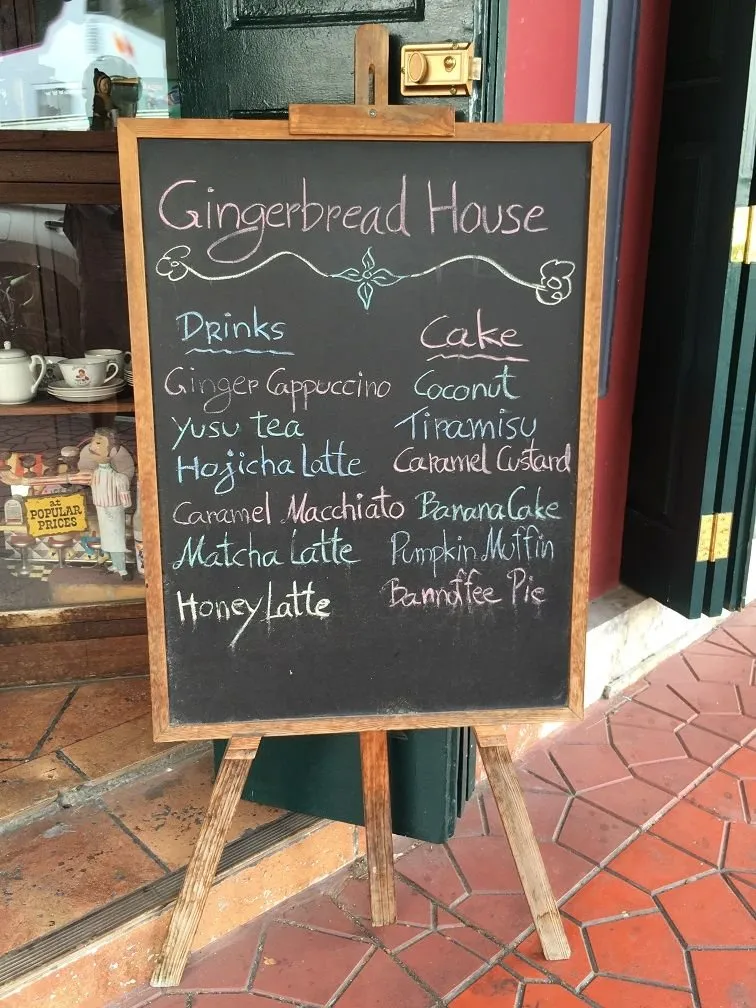 Gingerbread House
Drinks
Ginger Cappuccino
Yusu tea
Hojicha Latte
Caramel Macchiato
Matcha Latte
Honey Latte
Cake
Coconut
Tiramisu
Caramel Custard
Banana Cake
Pumpkin Muffin
Bannoffee Pie
at
POPULAR
PRICES